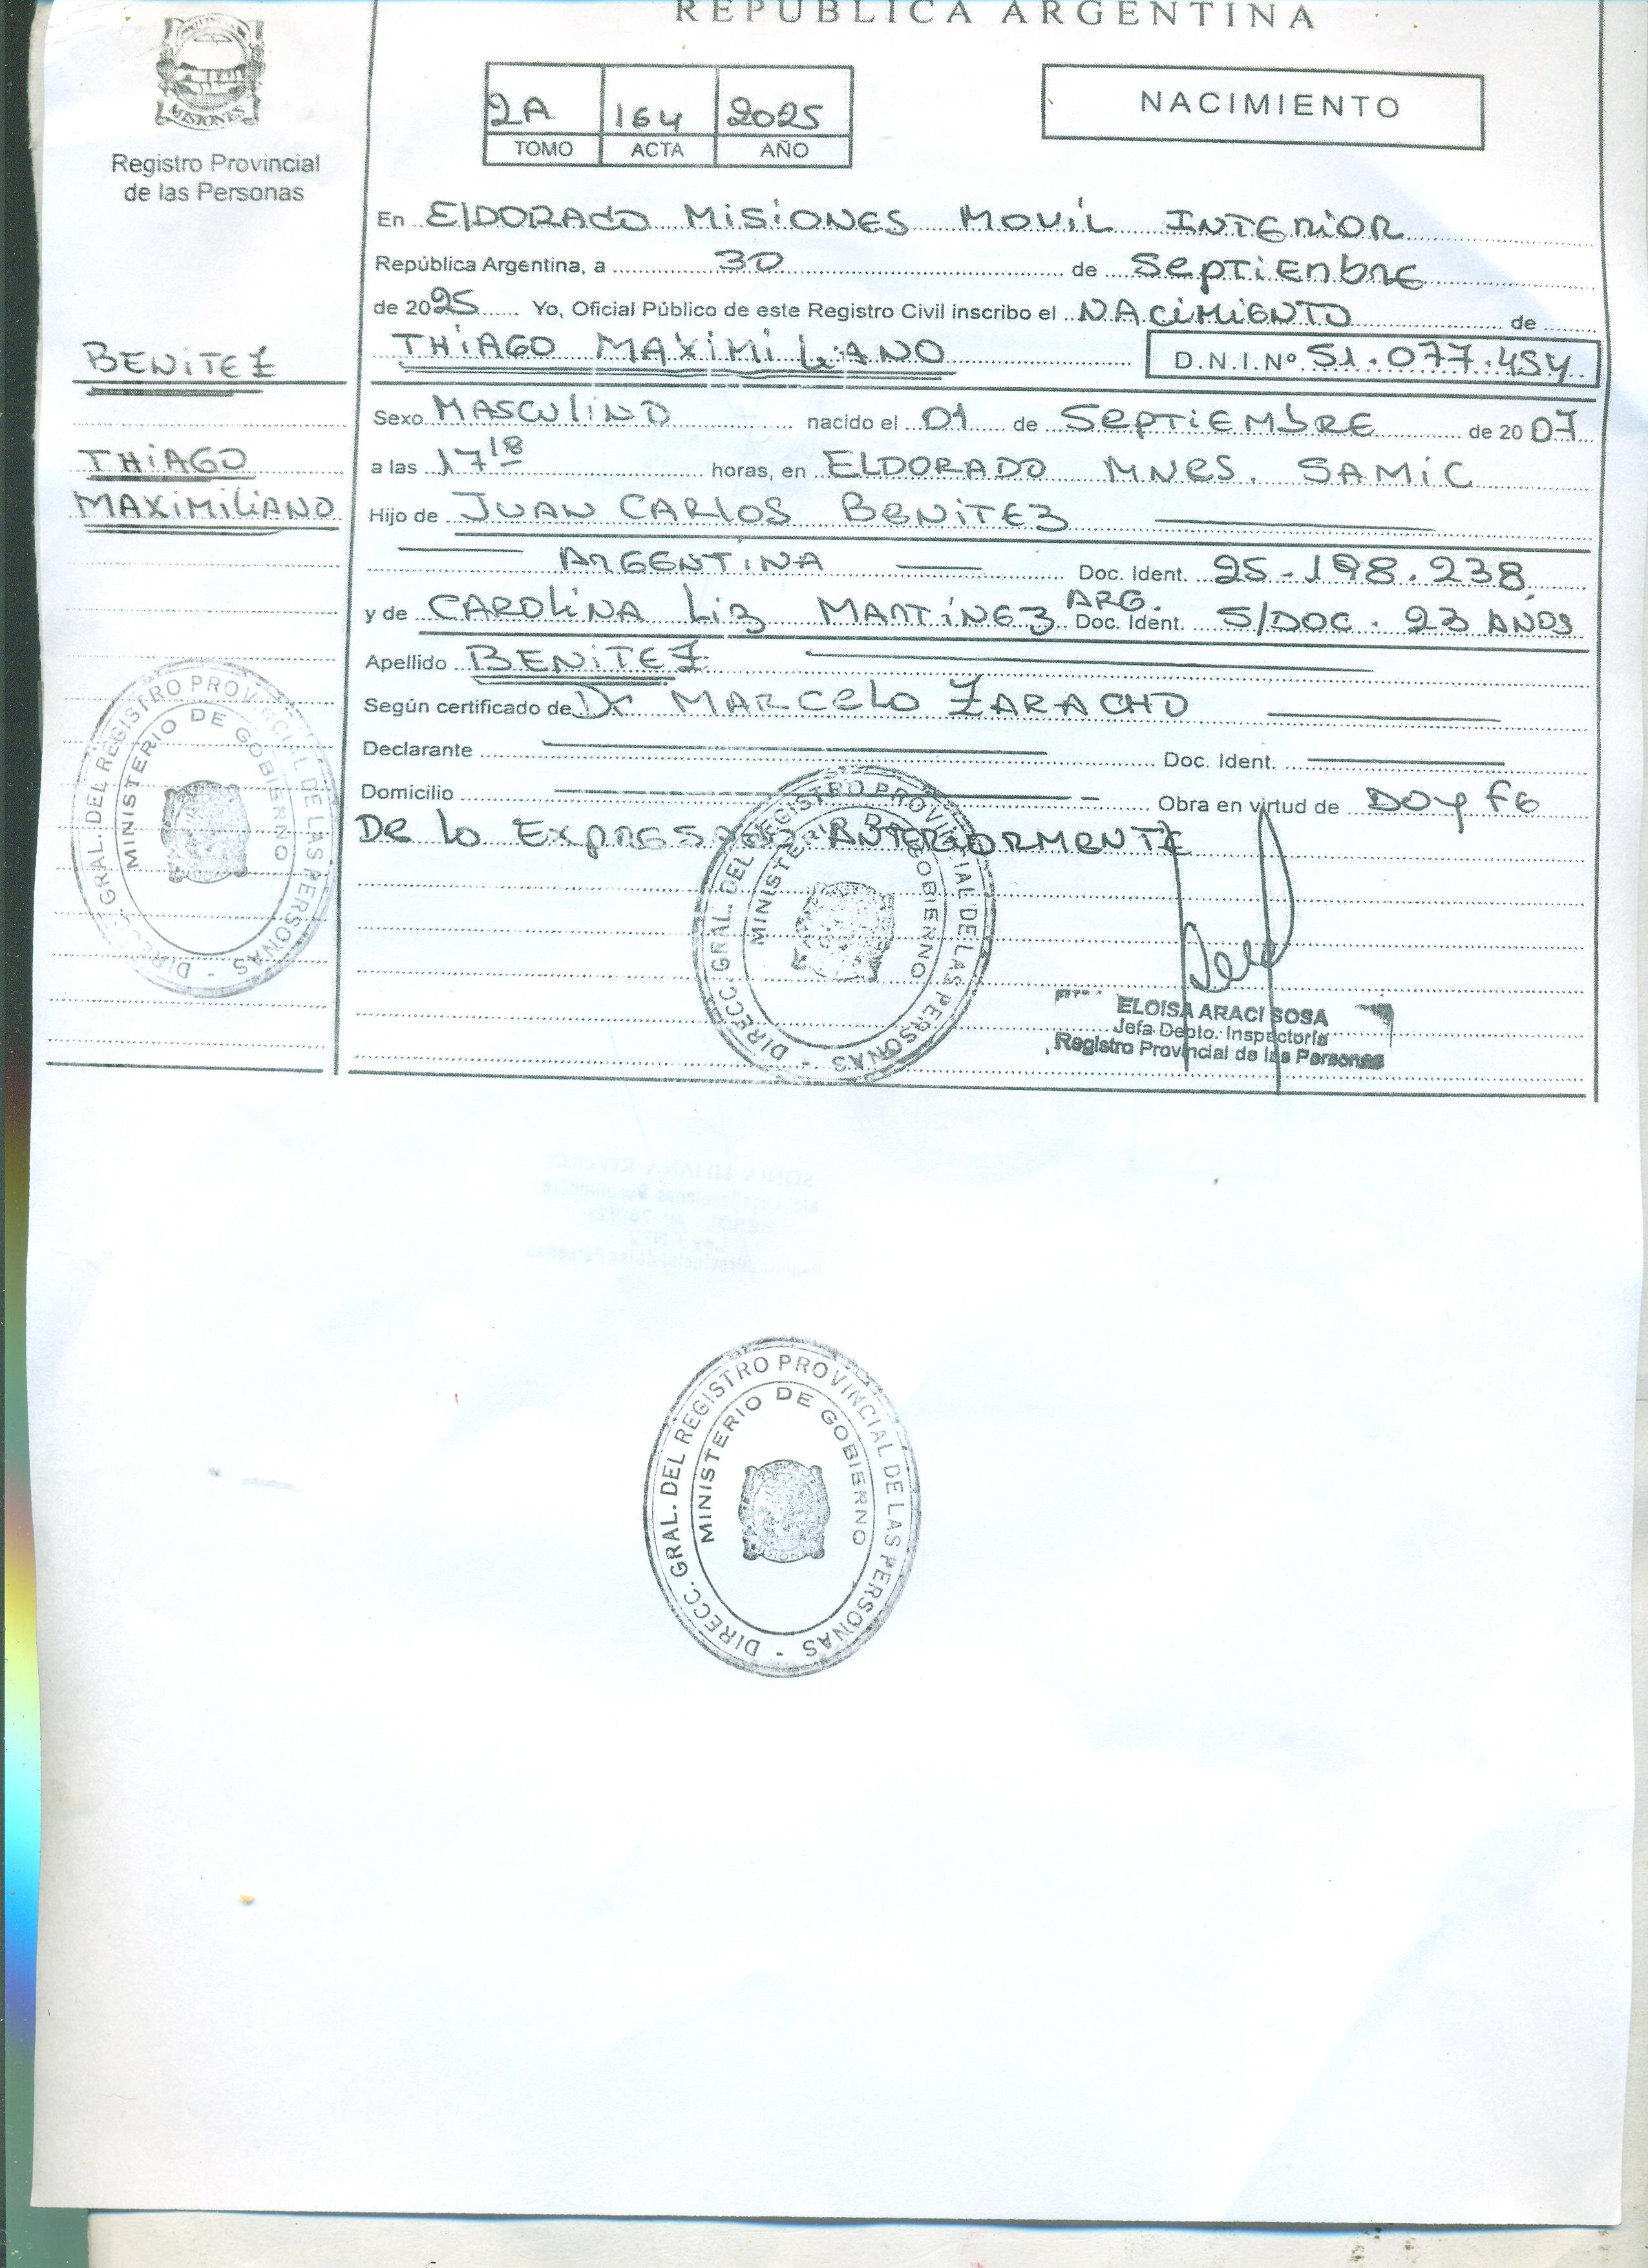 REPÚBLICA ARGENTINA
MISIONES
Registro Provincial
de las Personas
2A 164 2025
TOMO ACTA AÑO
NACIMIENTO
En ElDORADO MISIONES MOVIL INTERIOR
República Argentina, a 30 de SEPTIEMBRE
de 2025 Yo, Oficial Público de este Registro Civil inscribo el NACIMIENTO de
THIAGO MAXIMILIANO D.N.I.Nº 51.077.454
BENITEZ
THIAGO
MAXIMILIANO
Sexo MASCULINO nacido el 01 de SEPTIEMBRE de 2007
a las 17 18 horas, en ELDORADO MNES. SAMIC
Hijo de JUAN CARLOS BENITEZ
ARGENTINA Doc. Ident. 25-198.238
y de CAROLINA LIZ MARTINEZ ARG. Doc. Ident. S/DOC. 23 AÑOS
Apellido BENITEZ
Según certificado de Dr MARCELO ZARACHO
Declarante Doc. Ident.
Domicilio Obra en virtud de DOY FE
DE LO EXPRESADO ANTERIORMENTE
DIRECC. GRAL. DEL REGISTRO PROVINCIAL DE LAS PERSONAS -
MINISTERIO DE GOBIERNO
DIRECC. GRAL. DEL REGISTRO PROVINCIAL DE LAS PERSONAS -
MINISTERIO DE GOBIERNO
ELOISA ARACI SOSA
Jefa Depto. Inspectoría
Registro Provincial de las Personas
SONIA LILIANA RIVERO
DIRECC. GRAL. DEL REGISTRO PROVINCIAL DE LAS PERSONAS -
MINISTERIO DE GOBIERNO